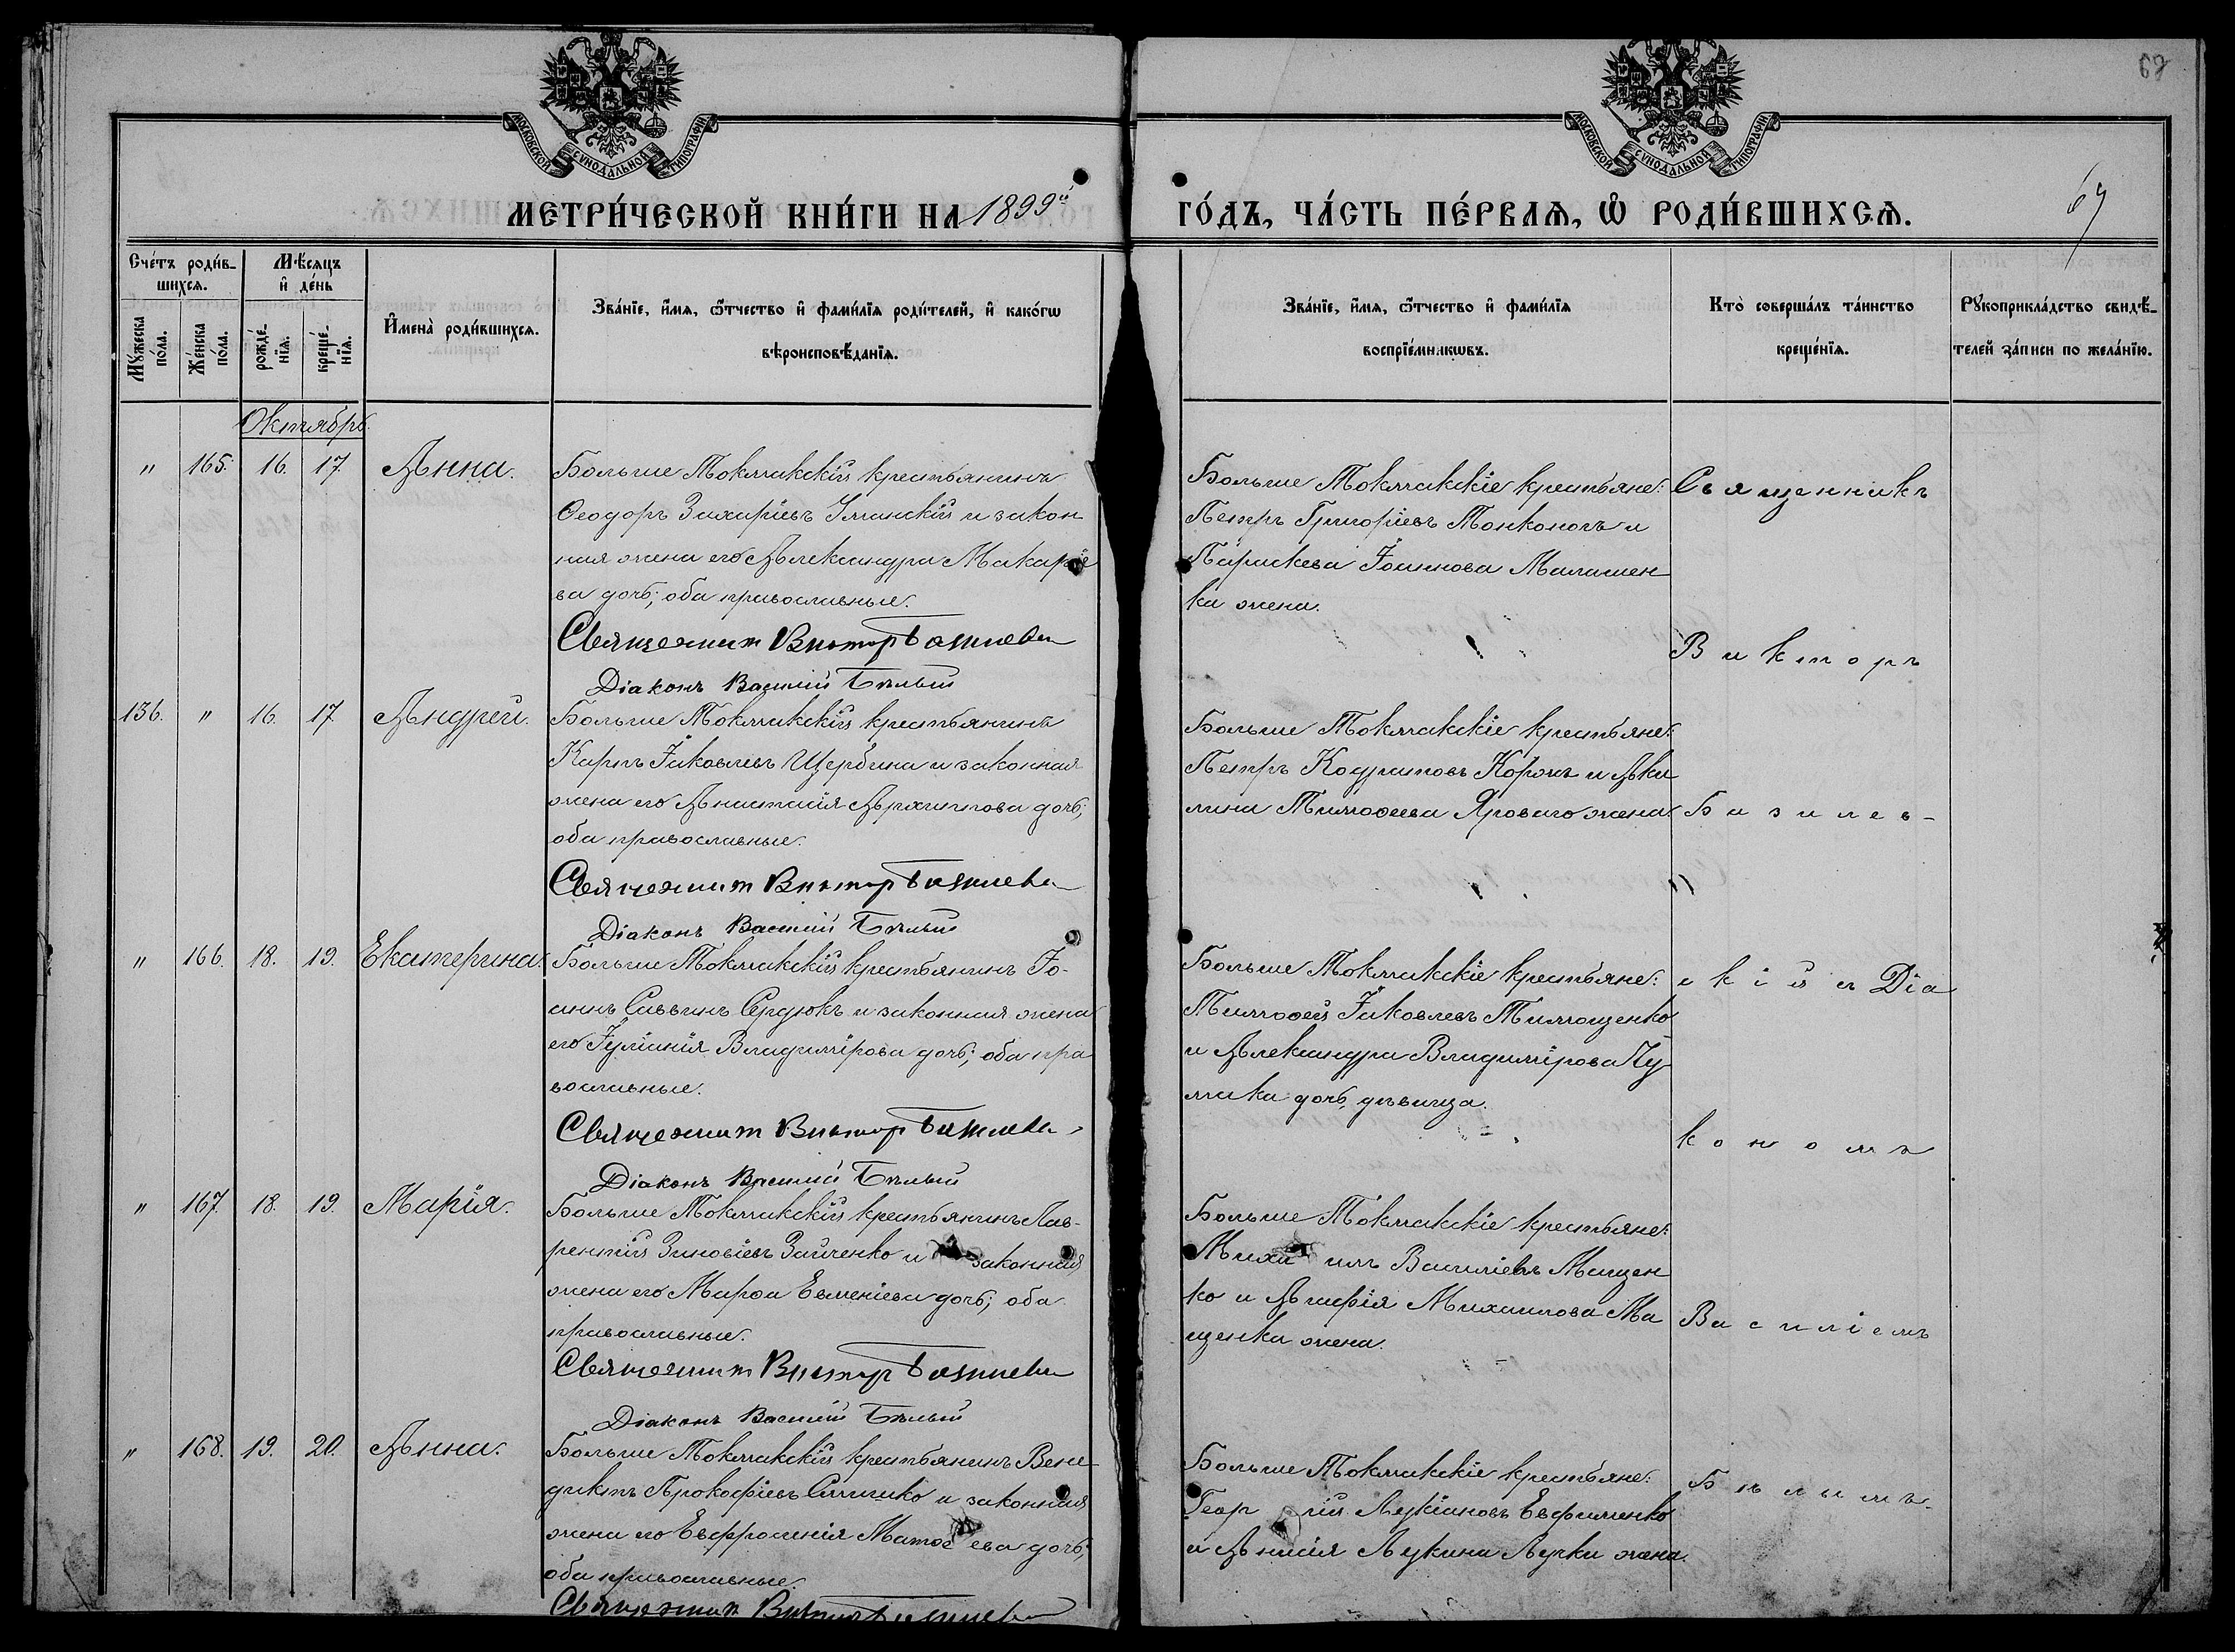 67
МОСКОВСКОЙ СУНОДАЛЬНОЙ ТИПОГРАФІИ
МОСКОВСКОЙ СУНОДАЛЬНОЙ ТИПОГРАФІИ
МЕТРИ́ЧЕСКОЙ КНИ́ГИ НА 1899й
ГО́ДЪ, ЧА́СТЬ ПЕ́РВАѦ, Ѡ҆ РОДИ́ВШИХСѦ.
69
Сче́тъ роди́в-
шихсѧ.
Мѣ́сѧцъ
и҆ де́нь
Мꙋ́жеска
по́ла.
Же́нска
по́ла.
рожде́-
нїѧ.
креще́-
нїѧ.
И҆мена̀ роди́вшихсѧ.
Зва́нїе, и҆́мѧ, ѻ҆́тчество и҆ фами́лїѧ роди́телей, и҆ како́гѡ
вѣроисповѣ́данїѧ.
Зва́нїе, и҆́мѧ, ѻ҆́тчество и҆ фами́лїѧ
воспрїе́мникѡвъ.
Кто̀ соверша́лъ та́инство
креще́нїѧ.
Рꙋкоприкла́дство свидѣ́-
телей за́писи по жела́нїю.
Октябрь.
" 165. 16. 17. Анна.
Больше Токмакскій крестьянинъ
Ѳеодоръ Захаріевъ Уманскій и закон
ная жена его Александра Макаріе
ва дочь; оба православные.
Священник Виктор Базилевич
Діаконъ Василій Бѣлый
Больше Токмакскіе крестьяне:
Петръ Григоріевъ Тонконогъ и
Параскева Іоаннова Малашен
ка жена.
136. " 16. 17. Андрей.
Больше Токмакскій крестьянинъ
Карпъ Іаковлевъ Щербина и законная
жена его Анастасія Архиппова дочь;
оба православные.
Священник Виктор Базилевич
Діаконъ Василій Бѣлый
Больше Токмакскіе крестьяне:
Петръ Кодратовъ Корохъ и Аки
лина Тимоѳеева Яроваго жена.
" 166. 18. 19. Екатерина.
Больше Токмакскій крестьянинъ Іо-
аннъ Саввинъ Сердюкъ и законная жена
его Іуліанія Владимірова дочь; оба пра
вославные.
Священник Виктор Базилевич
Діаконъ Василій Бѣлый
Больше Токмакскіе крестьяне:
Тимоѳей Іаковлевъ Тимощенко
и Александра Владимірова Чу
мака дочь, дѣвица.
" 167. 18. 19. Марія.
Больше Токмакскій крестьянинъ Лав-
рентій Зиновіевъ Зайченко и законная
жена его Марѳа Евменіева дочь; оба
православные.
Священник Виктор Базилевич
Діаконъ Василій Бѣлый
Больше Токмакскіе крестьяне:
Михаилъ Василіевъ Мащен
ко и Агафія Михаилова Ма
щенка жена.
" 168. 19. 20. Анна.
Больше Токмакскій крестьянинъ Вене
диктъ Прокофіевъ и законная
жена его Евфросинія Матѳеева дочь;
оба православные.
Священник Виктор Базилевич
Больше Токмакскіе крестьяне:
Георгій Лукіановъ Евфименко
и Анисія Лукина Лучки жена.
Священникъ
Викторъ
Базилев-
скій съ Діа
кономъ
Василіемъ
Бѣлымъ.